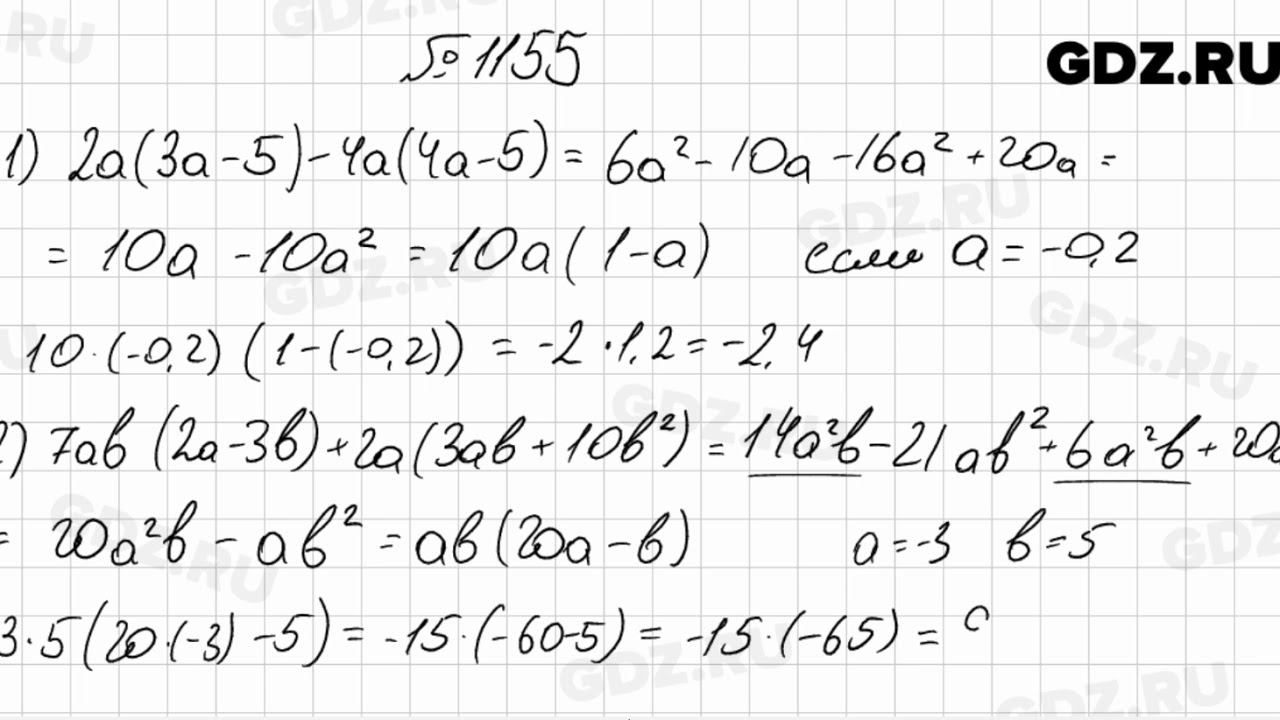 №1155
GDZ.RU
1) 2a(3a-5)-4a(4a-5) = 6a²- 10a -16a² + 20a =
= 10a -10a² = 10a(1-a) если a = -0,2
10·(-0,2) (1-(-0,2)) = -2·1,2 = -2,4
2) 7ab (2a-3b)+2a(3ab+10b²) = 14a²b-21ab²+6a²b+20a
= 20a²b - ab² = ab(20a-b) a=-3 b=5
3·5(20·(-3)-5) = -15·(-60-5) = -15·(-65) =